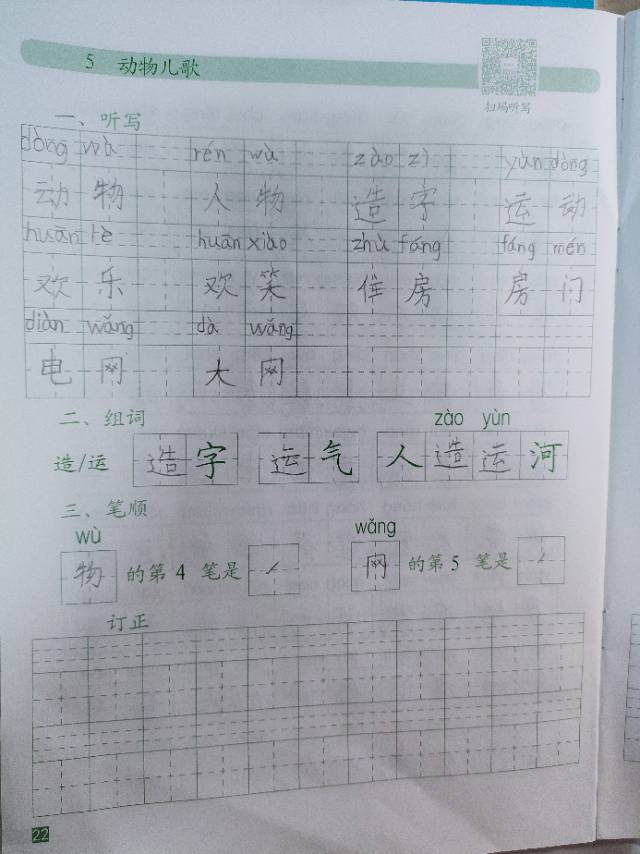 5 动物儿歌
扫码听写
一、听写
dòng wù rén wù zào zì yùn dòng
动物 人物 造字 运动
huān lè huān xiào zhù fáng fáng mén
欢乐 欢笑 住房 房门
diàn wǎng dà wǎng
电网 大网
二、组词
zào yùn
造/运 造字 运气 人造运河
三、笔顺
wù wǎng
物 的第 4 笔是 ノ 网 的第 5 笔是 ノ
订正
22